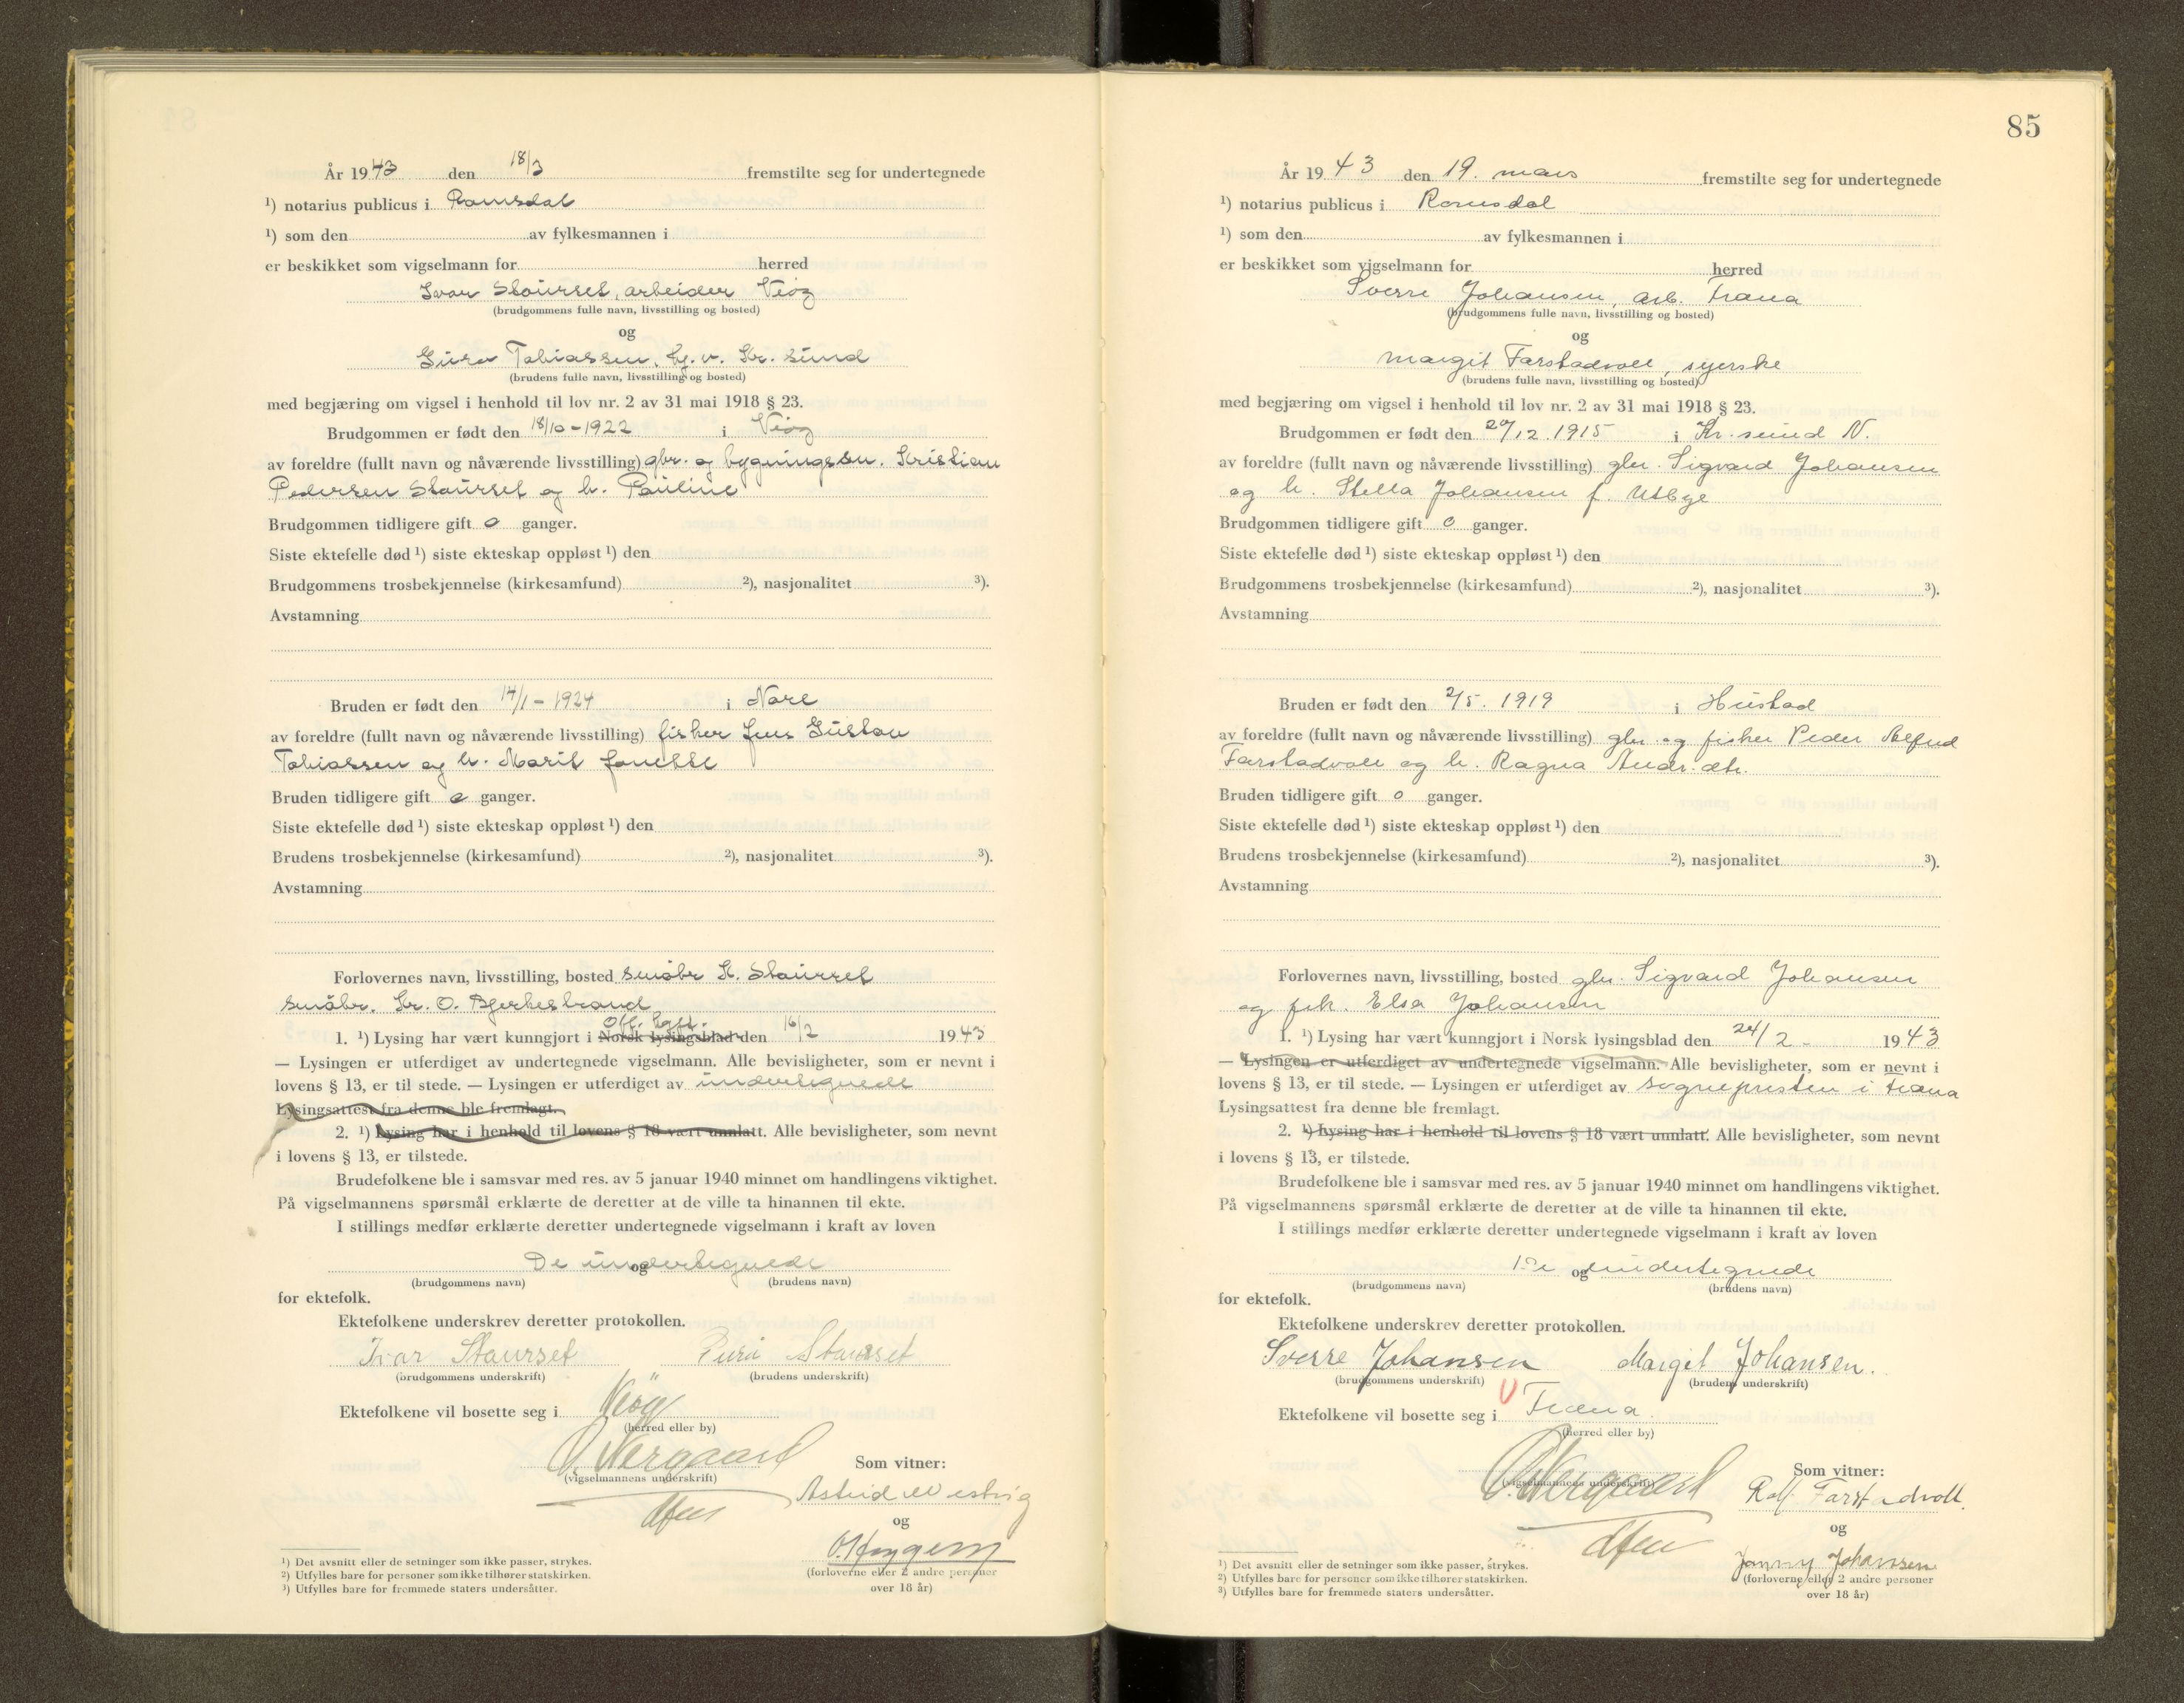 År 1943 den 18/3 fremstilte seg for undertegnede
¹) notarius publicus i Romsdal
¹) som den av fylkesmannen i
er beskikket som vigselmann for herred
Ivar Staurset, arbeider Veøy
(brudgommens fulle navn, livsstilling og bosted)
og
Guro Tobiassen, Kr. sund
(brudens fulle navn, livsstilling og bosted)
med begjæring om vigsel i henhold til lov nr. 2 av 31 mai 1918 § 23.
Brudgommen er født den 18/10-1922 i Veøy
av foreldre (fullt navn og nåværende livsstilling) gbr. og bygningssn. Kristian
Pedersen Staurset og h. Pauline
Brudgommen tidligere gift 0 ganger.
Siste ektefelle død ¹) siste ekteskap oppløst ¹) den
Brudgommens trosbekjennelse (kirkesamfund) ²), nasjonalitet ³).
Avstamning
Bruden er født den 14/1-1924 i
av foreldre (fullt navn og nåværende livsstilling) fisker Jens Gustav
Tobiassen og h. Marit Janette
Bruden tidligere gift 0 ganger.
Siste ektefelle død ¹) siste ekteskap oppløst ¹) den
Brudens trosbekjennelse (kirkesamfund) ²), nasjonalitet ³).
Avstamning
Forlovernes navn, livsstilling, bosted småbr. K. Staurset
småbr. Kr. O. Bjerkestrand
Off. kgj.
1. ¹) Lysing har vært kunngjort i Norsk lysingsblad den 16/2 1943
— Lysingen er utferdiget av undertegnede vigselmann. Alle bevisligheter, som er nevnt i
lovens § 13, er til stede. — Lysingen er utferdiget av undertegnede
Lysingsattest fra denne ble fremlagt.
2. ¹) Lysing har i henhold til lovens § 18 vært unnlatt. Alle bevisligheter, som nevnt
i lovens § 13, er tilstede.
Brudefolkene ble i samsvar med res. av 5 januar 1940 minnet om handlingens viktighet.
På vigselmannens spørsmål erklærte de deretter at de ville ta hinannen til ekte.
I stillings medfør erklærte deretter undertegnede vigselmann i kraft av loven
De undertegnede
og
(brudgommens navn) (brudens navn)
for ektefolk.
Ektefolkene underskrev deretter protokollen.
Ivar Staurset Staurset
(brudgommens underskrift) (brudens underskrift)
Ektefolkene vil bosette seg i Veöy
(herred eller by)
O. Nergaard
(vigselmannens underskrift)
Som vitner:
Astrid
og
(forloverne eller 2 andre personer
over 18 år)
¹) Det avsnitt eller de setninger som ikke passer, strykes.
²) Utfylles bare for personer som ikke tilhører statskirken.
³) Utfylles bare for fremmede staters undersåtter.
85
År 1943 den 19. mars fremstilte seg for undertegnede
¹) notarius publicus i Romsdal
¹) som den av fylkesmannen i
er beskikket som vigselmann for herred
Sverre Johansen, arb. Træna
(brudgommens fulle navn, livsstilling og bosted)
og
Margit Farstadvoll, syerske
(brudens fulle navn, livsstilling og bosted)
med begjæring om vigsel i henhold til lov nr. 2 av 31 mai 1918 § 23.
Brudgommen er født den 29/12.1915 i Kr. sund N.
av foreldre (fullt navn og nåværende livsstilling) gbr. Sigvard Johansen
og h. Stella Johansen f. Utbye
Brudgommen tidligere gift 0 ganger.
Siste ektefelle død ¹) siste ekteskap oppløst ¹) den
Brudgommens trosbekjennelse (kirkesamfund) ²), nasjonalitet ³).
Avstamning
Bruden er født den 2/5.1919 i Hustad
av foreldre (fullt navn og nåværende livsstilling) gbr. og fisker Peder Alfred
Farstadvoll og h. Ragna Andr. dtr.
Bruden tidligere gift 0 ganger.
Siste ektefelle død ¹) siste ekteskap oppløst ¹) den
Brudens trosbekjennelse (kirkesamfund) ²), nasjonalitet ³).
Avstamning
Forlovernes navn, livsstilling, bosted gbr. Sigvard Johansen
og frk. Elsa Johansen
1. ¹) Lysing har vært kunngjort i Norsk lysingsblad den 24/2 1943
— Lysingen er utferdiget av undertegnede vigselmann. Alle bevisligheter, som er nevnt i
lovens § 13, er til stede. — Lysingen er utferdiget av sognepresten i Træna
Lysingsattest fra denne ble fremlagt.
2. ¹) Lysing har i henhold til lovens § 18 vært unnlatt. Alle bevisligheter, som nevnt
i lovens § 13, er tilstede.
Brudefolkene ble i samsvar med res. av 5 januar 1940 minnet om handlingens viktighet.
På vigselmannens spørsmål erklærte de deretter at de ville ta hinannen til ekte.
I stillings medfør erklærte deretter undertegnede vigselmann i kraft av loven
De og undertegnede
(brudgommens navn) (brudens navn)
for ektefolk.
Ektefolkene underskrev deretter protokollen.
Sverre Johansen Margit Johansen.
(brudgommens underskrift) (brudens underskrift)
Ektefolkene vil bosette seg i Træna.
(herred eller by)
O. Nergaard
(vigselmannens underskrift)
Som vitner:
Rolf Farstadvoll.
og
Jonny Johanssen
(forloverne eller 2 andre personer
over 18 år)
¹) Det avsnitt eller de setninger som ikke passer, strykes.
²) Utfylles bare for personer som ikke tilhører statskirken.
³) Utfylles bare for fremmede staters undersåtter.